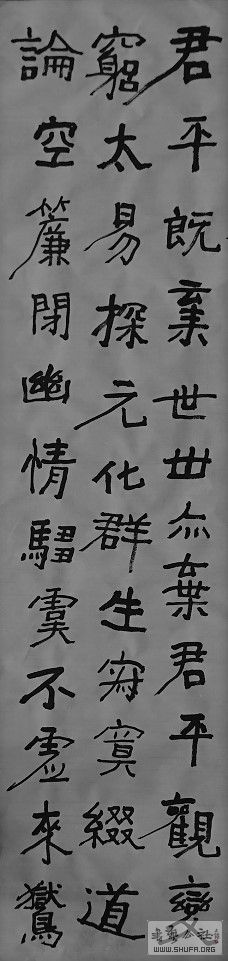 君平既棄世世亦棄君平觀變
窮太易探元化群生寂寞綴道
論空簾閉幽情騶虞不虛來鸑
WWW.SHUFA.ORG